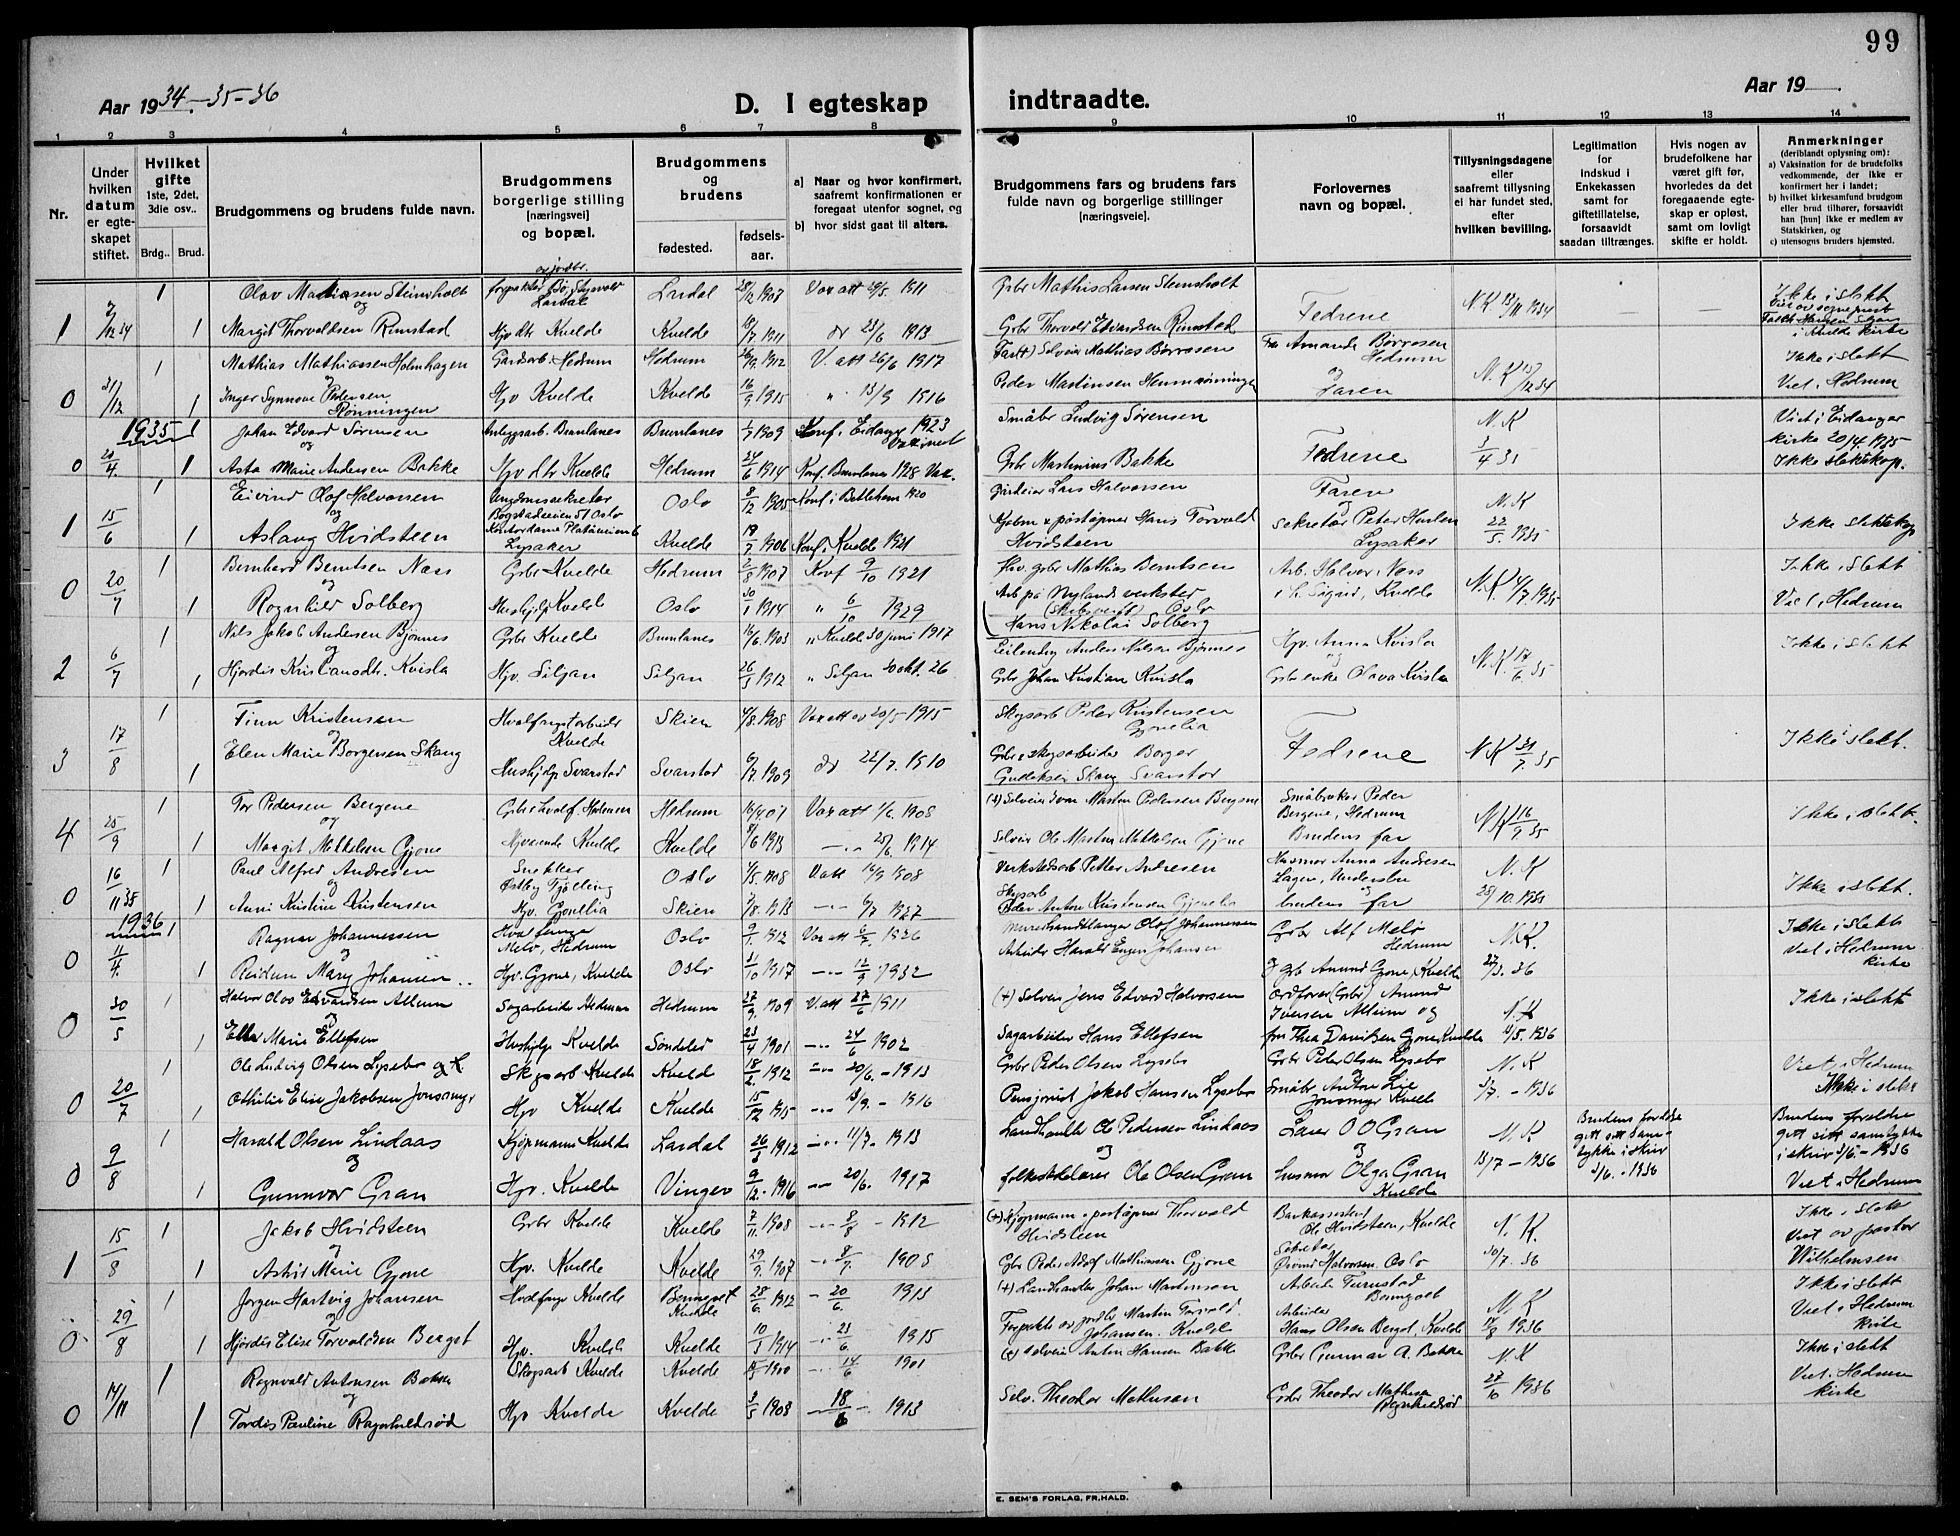 99
Aar 1934-35-36
D. I egteskap
indtraadte.
Aar 19
1 2 3 4 5 6 7 8 9 10 11 12 13 14
Nr.
Under hvilken datum er egteskapet stiftet.
Hvilket gifte 1ste, 2det, 3die osv..
Brdg..
Brud.
Brudgommens og brudens fulde navn.
Brudgommens borgerlige stilling [næringsvei] og bopæl.
Brudgommens og brudens
fødested.
fødselsaar.
a) Naar og hvor konfirmert, saafremt konfirmationen er foregaat utenfor sognet, og
b) hvor sidst gaat til alters.
Brudgommens fars og brudens fars fulde navn og borgerlige stillinger [næringsveie].
Forlovernes navn og bopæl.
Tillysningsdagene eller saafremt tillysning ei har fundet sted, efter hvilken bevilling.
Legitimation for indskud i Enkekassen samt for giftetillatelse, forsaavidt saadan tiltrænges.
Hvis nogen av brudefolkene har været gift før, hvorledes da det foregaaende egteskap er opløst, samt om lovligt skifte er holdt.
Anmerkninger
(deriblandt oplysning om):
a) Vaksination for de brudefolks vedkommende, der ikke er konfirmert her i landet;
b) hvilket kirkesamfund brudgom eller brud tilhører, forsaavidt han [hun] ikke er medlem av Statskirken, og
c) utensogns bruders hjemsted.
1 2/12 34 1 Olav Mathiasen Steinsholt Lardal 28/12 1907 Vax att 29/5 1911 Gbr Mathis Larsen Steinsholt Ikke i slekt
og Fedrene N.K 13/11 1934
1 Margit Thorvaldsen Rimstad Hjv dtr Kvelde Kvelde 18/7 1911 do 23/6 1913 Gbr Thorvald Edvardsen Rimstad i Kvelde kirke
0 31/12 1 Mathias Mathiassen Holmhagen Gardarb. Hedrum Hedrum 26/9 1912 V. att 26/6 1917 Selveier Mathias Børresen Fru Amanda Børresen Hedrum N.K 13/12 34 Ikke i slekt
og og
1 Inger Synnøve Pedersen Rønningen Hjv Kvelde Kvelde 16/9 1915 " 13/9 1916 Peder Martinsen Faren Viet i Hedrum
1935
0 20/4 1 Johan Edvard Sørensen Brunlanes Brunlanes 1/7 1909 Konf. i Eidanger 1923 Vaksinert Småbr Ludvig Sørensen Fedrene N.K 3/4 35 Viet i Eidanger kirke 20/4 1935
og
1 Asta Marie Andersen Bakke Hjv dtr Kvelde Hedrum 24/6 1914 Konf Brunlanes 1928 Vax. Gbr Martinius Bakke Ikke slektskap.
1 15/6 1 Eivind Olof Halvorsen Ungdomssekretær Bogstadveien 51 Oslo Oslo 8/12 1905 Konf i Betlehem 1920 Gårdeier Lars Halvorsen Faren N.K
og og
1 Aslaug Hvidsteen Kontordame Platåveien 6 Lysaker Kvelde 19/7 1906 Konf i Kvelde 1921 Kjøbm & postopner Hans Torvald Hvidsteen Sekretær Peter Lysaker 22/5 1935 Ikke slektskap
0 20/7 1 Bernhard Berntsen Næss Gbr Kvelde Hedrum 2/8 1907 Konf 9/10 1921 Hv. gbr Mathias Berntsen Arb. Halvor Næss N.K 4/7 1935 Ikke i slekt
og
1 Ragnhild Solberg Hushjelp Kvelde Oslo 30/1 1914 " 6/10 1929 Arb på Nylands verksted Oslo Hans Nikolai Solberg Sigrid, Kvelde Viet i Hedrum
2 6/7 1 Nils Jakob Andersen Bjønnes Gbr Kvelde Brunlanes 16/6 1903 " Kvelde 30 juni 1917 Anders Nilsen Bjønnes Hjv. Anna Kvisla N.K 17/6 35 Ikke i slekt
og og
1 Hjørdis Kristiansdtr. Kvisla Hjv. Siljan Siljan 26/3 1912 " Siljan 20 okt. 26 Gbr Johan Kristian Kvisla Gbr enke Olava Kvisla
3 17/8 1 Finn Kristensen Hvalfangstarbeider Kvelde Skien 4/8 1908 Vax att av 20/5 1915 Skogsarb Peder Kristensen Gjonelia Fedrene N.K 31/7 35 Ikke i slekt.
og
1 Elen Marie Borgersen Skaug Hushjelp Svarstad Svarstad 6/7 1909 do 22/7. 1910 Gbr & skogsarbeider Borger Gudeksen Skaug Svarstad
4 25/9 1 Tor Pedersen Bergene Hedrum Hedrum 16/4 07 Vax att 1/6. 1908 (+) Selveier Ivar Martin Pedersen Bergene Småbruker Peder Bergene, Hedrum N.K 16/9 35 Ikke i slekt.
og
1 Margit Mikkelsen Gjone Hjværende Kvelde Kvelde 8/6 1913 - " - 25/6. 1914 Selveier Ole Martin Mikkelsen Gjone Brudens far
0 16/11 35 1 Paul Alfred Andresen Snekker Østby Tjølling Oslo 4/5. 1908 V att 14/9 1908 Verkstedsarb Petter Andresen Husmor Anna Andresen Lågen, N.K
og og
1 Anni Kristine Kristensen Hjv. Gjonelia Skien 7/8 1913 - " - 6/7 1927 Skogsarb Peder Anton Kristensen Gjonelia brudens far 28/10 1935 Ikke i slekt.
1936
0 11/4. 1 Ragnar Johannessen Hvalfanger Melø, Hedrum Oslo 9/1. 1912 Vax att 1926 Murerhandlanger Olof Johannessen Gbr Alf Melø Hedrum N.K. Ikke i slekt
og Viet i Hedrum kirke
1 Reidun Mary Johansen Hjv. Gjone, Kvelde Oslo 31/10 1917 - " - 12/9 1932 Arbeider Harald Eugen Johansen og gbr Amund Gjone, Kvelde 27/3. 36
0 30/5 1 Halvor Olav Edvardsen Allum Sagarbeider Hedrum Hedrum 27/9. 1909 V. att 27/6 1911 (+) Selveier Jens Edvard Halvorsen Ordfører (Gbr) Amund Iversen Allum og N.K Ikke i slekt
og
1 Ella Marie Ellefsen Hushjelp Kvelde Søndeled 23/4 1901 - " - 24/6 1902 Sagarbeider Hans Ellefsen fru Thea Davidsen Gjone, Kvelde 11/5. 1936
0 20/7 1 Ole Ludvig Olsen Lysebo og Skogsarb Kvelde Kvelde 18/2. 1912 - " - 20/6. - 1913 Gbr Peder Olsen Lysebo Gbr Peder Olsen Lysebo N.K Viet i Hedrum
1 Othilie Elise Jakobsen Jonsmyr Hjv Kvelde Kvelde 15/12 1915 - " - 18/9. - 1916 Pensjonist Jakob Hansen Lysebo Småbr Anton Lie Jonsmyr Kvelde 3/7. - 1936 Ikke i slekt
0 9/8 1 Harald Olsen Lindaas Kjøpmann Kvelde Lardal 26/5 1912 - " - 11/7. 1913 Landhandler Ole Pedersen Lindaas Lærer O O Gran N.K Brudens foreldre gitt sitt samtykke i skriv 3/6. - 1936 Brudens foreldre gitt sitt samtykke i skriv 3/6 - 1936
og og og
1 Gunnvor Gran Hjv. Kvelde Vinger 9/12. 1916 - " - 20/6. 1917 folkeskolelærer Ole Olsen Gran husmor Olga Gran Kvelde 13/7 - 1936 Viet i Hedrum
1 15/8 1 Jakob Hvidsteen Gbr Kvelde Kvelde 7/11. 1908 - " - 8/8 - 1912 (+) Kjøpmann & postopner Thorvald Hvidsteen Ole Hvidsteen, Kvelde N.K. Ikke i slekt
og Viet av pastor
1 Astrid Marie Gjone Hjv. Kvelde Kvelde 29/9. 1907 - " - 8/7. 1908 Gbr Peder Adolf Mathiassen Gjone Sekretær Øivind Halvorsen, Oslo 30/7. 36 Wilhelmsen
0 29/8 1 Jørgen Hartvig Johansen Hvalfanger Kvelde Kvelde 28/6. 1912 - " - 20/6. 1913 (+) Landhandler Johan Martinsen Arbeider N.K Ikke i slekt
og Viet i Hedrum kirke
1 Hjørdis Elise Torvaldsen Bergst Hjv. Kvelde Kvelde 10/3 1914 - " - 21/6. 1915 Forpakter av jordbr Martin Torvald Johansen. Kvelde Arbeider Hans Olsen Bergst, Kvelde 14/8 1936
0 14/11 1 Ragnvald Antonsen Bakke Skogsarb Kvelde Kvelde 1900 - " - 14/6 1901 Selveier Anton Hansen Bakke Gbr Gunnar A. Bakke N.K Ikke i slekt
og Viet i Hedrum kirke
1 Tordis Pauline Ragnhildsrød Hjv Kvelde Kvelde 3/5 1908 - 18/6 - 1913 Selv. Theodor Mathisen Gbr Theodor Mathisen Ragnhildsrød 27/10 1936
E. SEM'S FORLAG, FR.HALD.